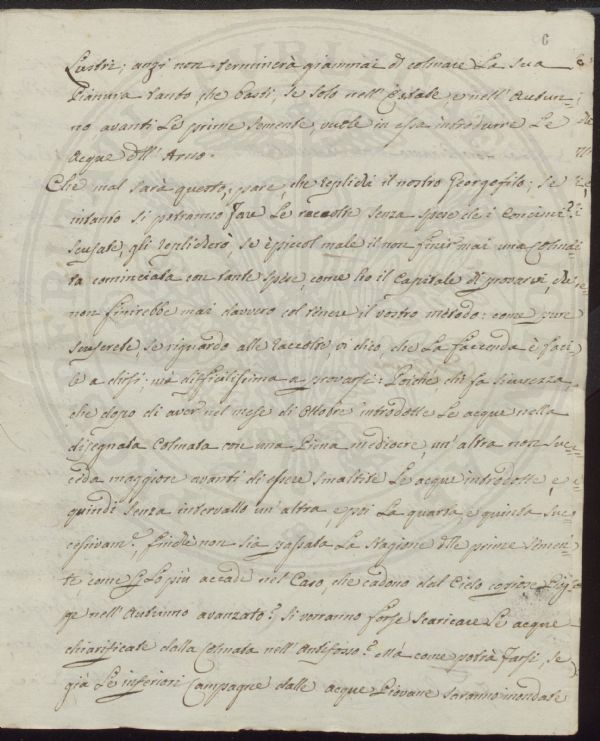 6
Lustri; anzi non terminerà giammai di colmare La sua
Pianura tanto, che basti, se solo nell'Estate, e nell'Autun=
no avanti Le prime semente, vuole in essa introdurre Le
Acque dell'Arno.
Che mal sarà questo, pare, che replichi il nostro Georgofilo; se
intanto si potranno fare Le raccolte senza spese de i Concimi?
scusate, gli replicherò, se è piccol male il non finir mai una Colma=
ta cominciata con tante spese, come ho il Capitale di provarvi, che
non finirebbe mai davvero col tenere il vostro metodo: come pure
scuserete, se riguardo alle raccolte, vi dico, che La faccenda è faci=
le a dirsi; mà difficilissima a provarsi: Poiché chi fa sicurezza,
che dopo di aver nel mese di Ottobre introdotte Le acque nella
disegnata Colmata con una Piena mediocre, un'altra non suc=
ceda maggiore avanti di essere smaltite Le acque introdotte, e
quindi senza intervallo un'altra, e poi La quarta, e quinta suc=
cessivam:e, finché non sia passata La stagione delle prime semen=
te, come p lo più accade nel Caso, che cadono dal Cielo copiose Piog=
ge nell'Autunno avanzato? Si vorranno forse scaricare Le acque
chiarificate dalla Colmata nell'Antifosso? Mà come potrà farsi, se
già Le inferiori Campagne dalle acque Piovane saranno inondate